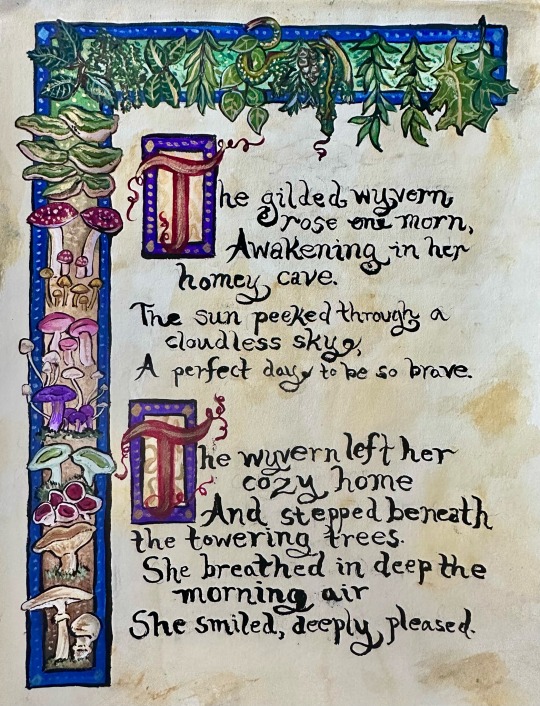 The gilded wyvern
rose one morn,
Awakening in her
homey cave.
The sun peeked through a
cloudless sky,
A perfect day to be so brave.
The wyvern left her
cozy home
And stepped beneath
the towering trees.
She breathed in deep the
morning air
She smiled, deeply pleased.